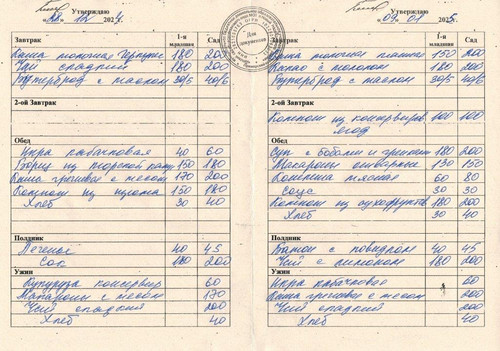 Утверждаю
Завтрак 1-я младшая Сад
Каша молочная 180 200
Чай сладкий 180 200
Бутерброд с маслом 30/5 40/6
2-ой Завтрак
Обед
Икра кабачковая 40 60
Борщ из морской кап 150 180
Каша гречневая с мясом 170 200
Компот из изюма 150 180
Хлеб 30 40
Полдник
Печенье 40 45
Сок 180 200
Ужин
Кукуруза консервир 60
Макароны с мясом 170
Чай сладкий 200
Хлеб 40
Для документов
Утверждаю
09 01
Завтрак 1-я младшая Сад
Каша молочная 150 200
Какао с молоком 180 200
Бутерброд с маслом 30/5 40/6
2-ой Завтрак
Компот из консервиров. 100 100
ягод
Обед
Суп с бобами и гренками 180 200
Макароны отварные 130 150
Котлета мясная 60 80
Соус 30 30
Компот из сухофруктов 180 200
Хлеб 30 40
Полдник
Батон с повидлом 40 45
Чай с лимоном 180 200
Ужин
Икра кабачковая 60
Каша гречневая с мясом 200
Чай сладкий 200
Хлеб 40